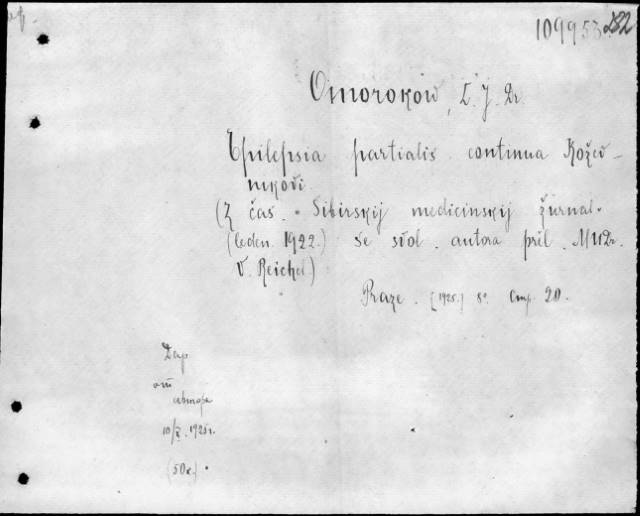 109953
282
Omorokow, L. J. Dr.
Epilepsia partialis continua Kožev-
nikovi.
(Z čas. "Sibirskij medicinskij žurnal"
(leden. 1922.) se svol. autora přel. MUDr.
V. Reichel)
Praze. [1925.] 8°. Стр. 20.
Дар
от
автора
10/X. 1925г.
(50к.)